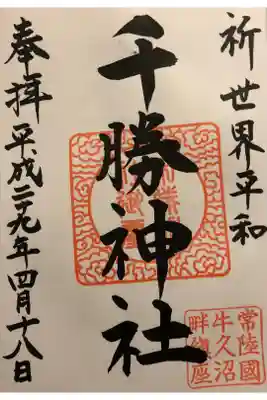 祈世界平和
千勝神社
奉拝平成二九年四月十八日
常陸國
牛久沼
畔鎮座